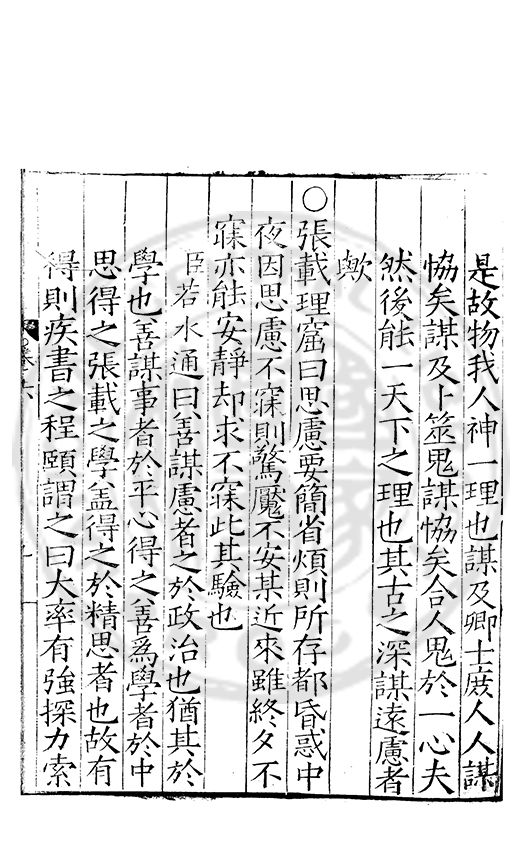 是故物我人神一理也謀及卿士庶人人謀
恊矣謀及卜筮鬼謀恊矣合人鬼於一心夫
然後能一天下之理也其古之深謀遠慮者
歟
○張載理窟曰思慮要簡省煩則所存都昏惑中
夜因思慮不寐則驚魘不安某近來雖終夕不
寐亦能安靜却求不寐此其驗也
臣若水通曰善謀慮者之於政治也猶其於
學也善謀事者於平心得之善爲學者於中
思得之張載之學盖得之於精思者也故有
得則疾書之程頤謂之曰大率有強探力索